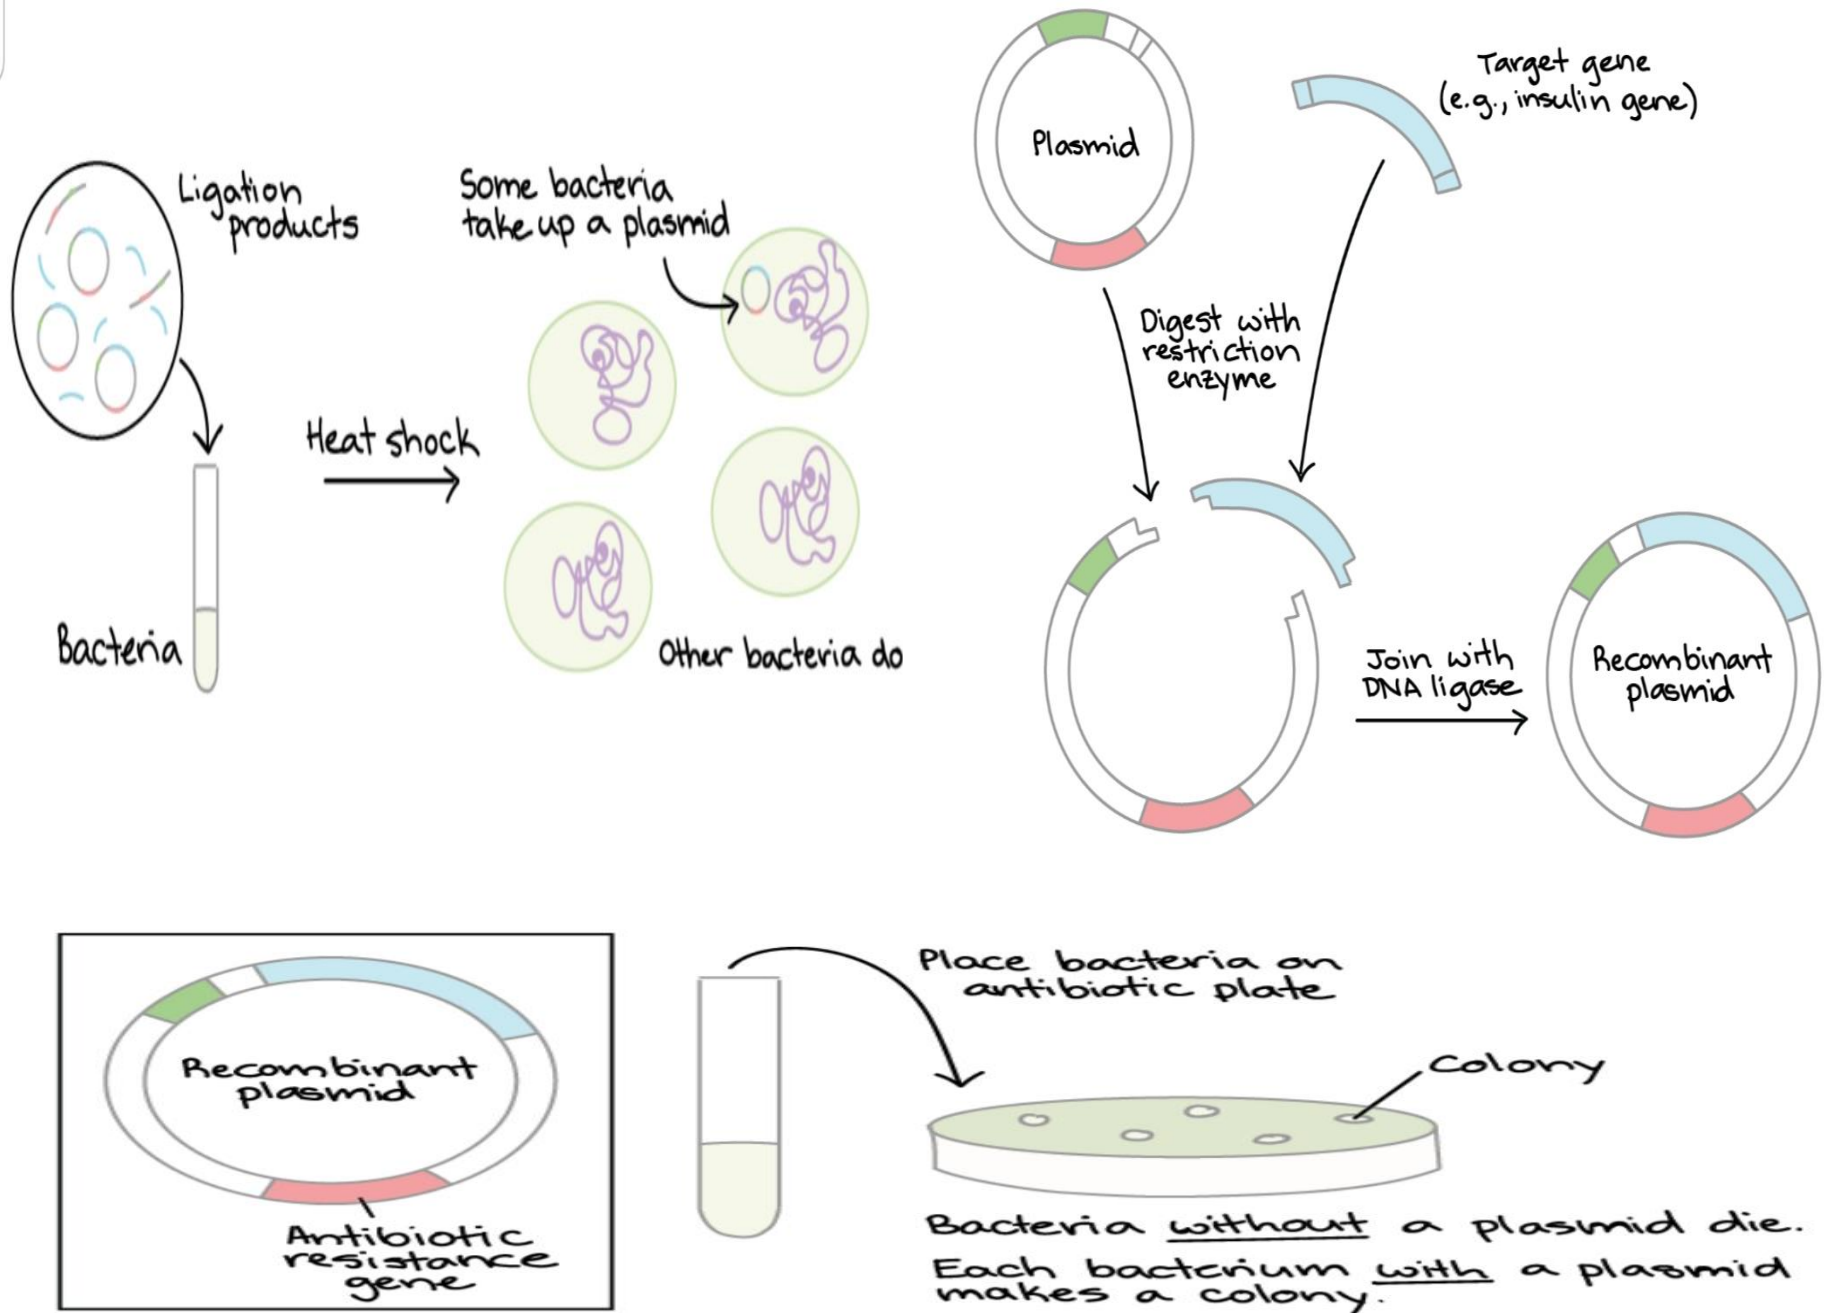 Ligation
products
Some bacteria
take up a plasmid
Heat shock
Bacteria
Other bacteria do
Plasmid
Target gene
(e.g., insulin gene)
Digest with
restriction
enzyme
Join with
DNA ligase
Recombinant
plasmid
Recombinant
plasmid
Antibiotic
resistance
gene
Place bacteria on
antibiotic plate
Colony
Bacteria without a plasmid die.
Each bacterium with a plasmid
makes a colony.